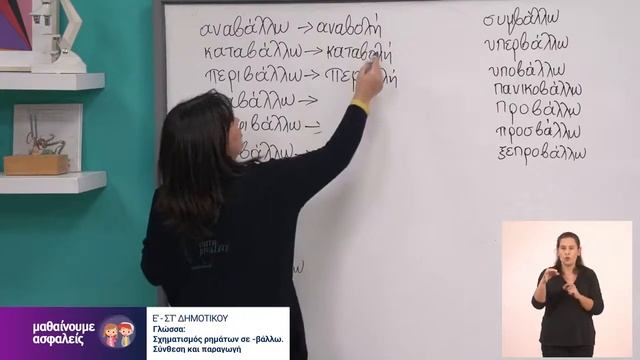 αναβάλλω → αναβολή
καταβάλλω → καταβολή
περιβάλλω →
συμβάλλω
υπερβάλλω
υποβάλλω
πανικοβάλλω
προβάλλω
προσβάλλω
ξεπροβάλλω
μαθαίνουμε
ασφαλείς
Ε' - ΣΤ' ΔΗΜΟΤΙΚΟΥ
Γλώσσα:
Σχηματισμός ρημάτων σε -βάλλω.
Σύνθεση και παραγωγή